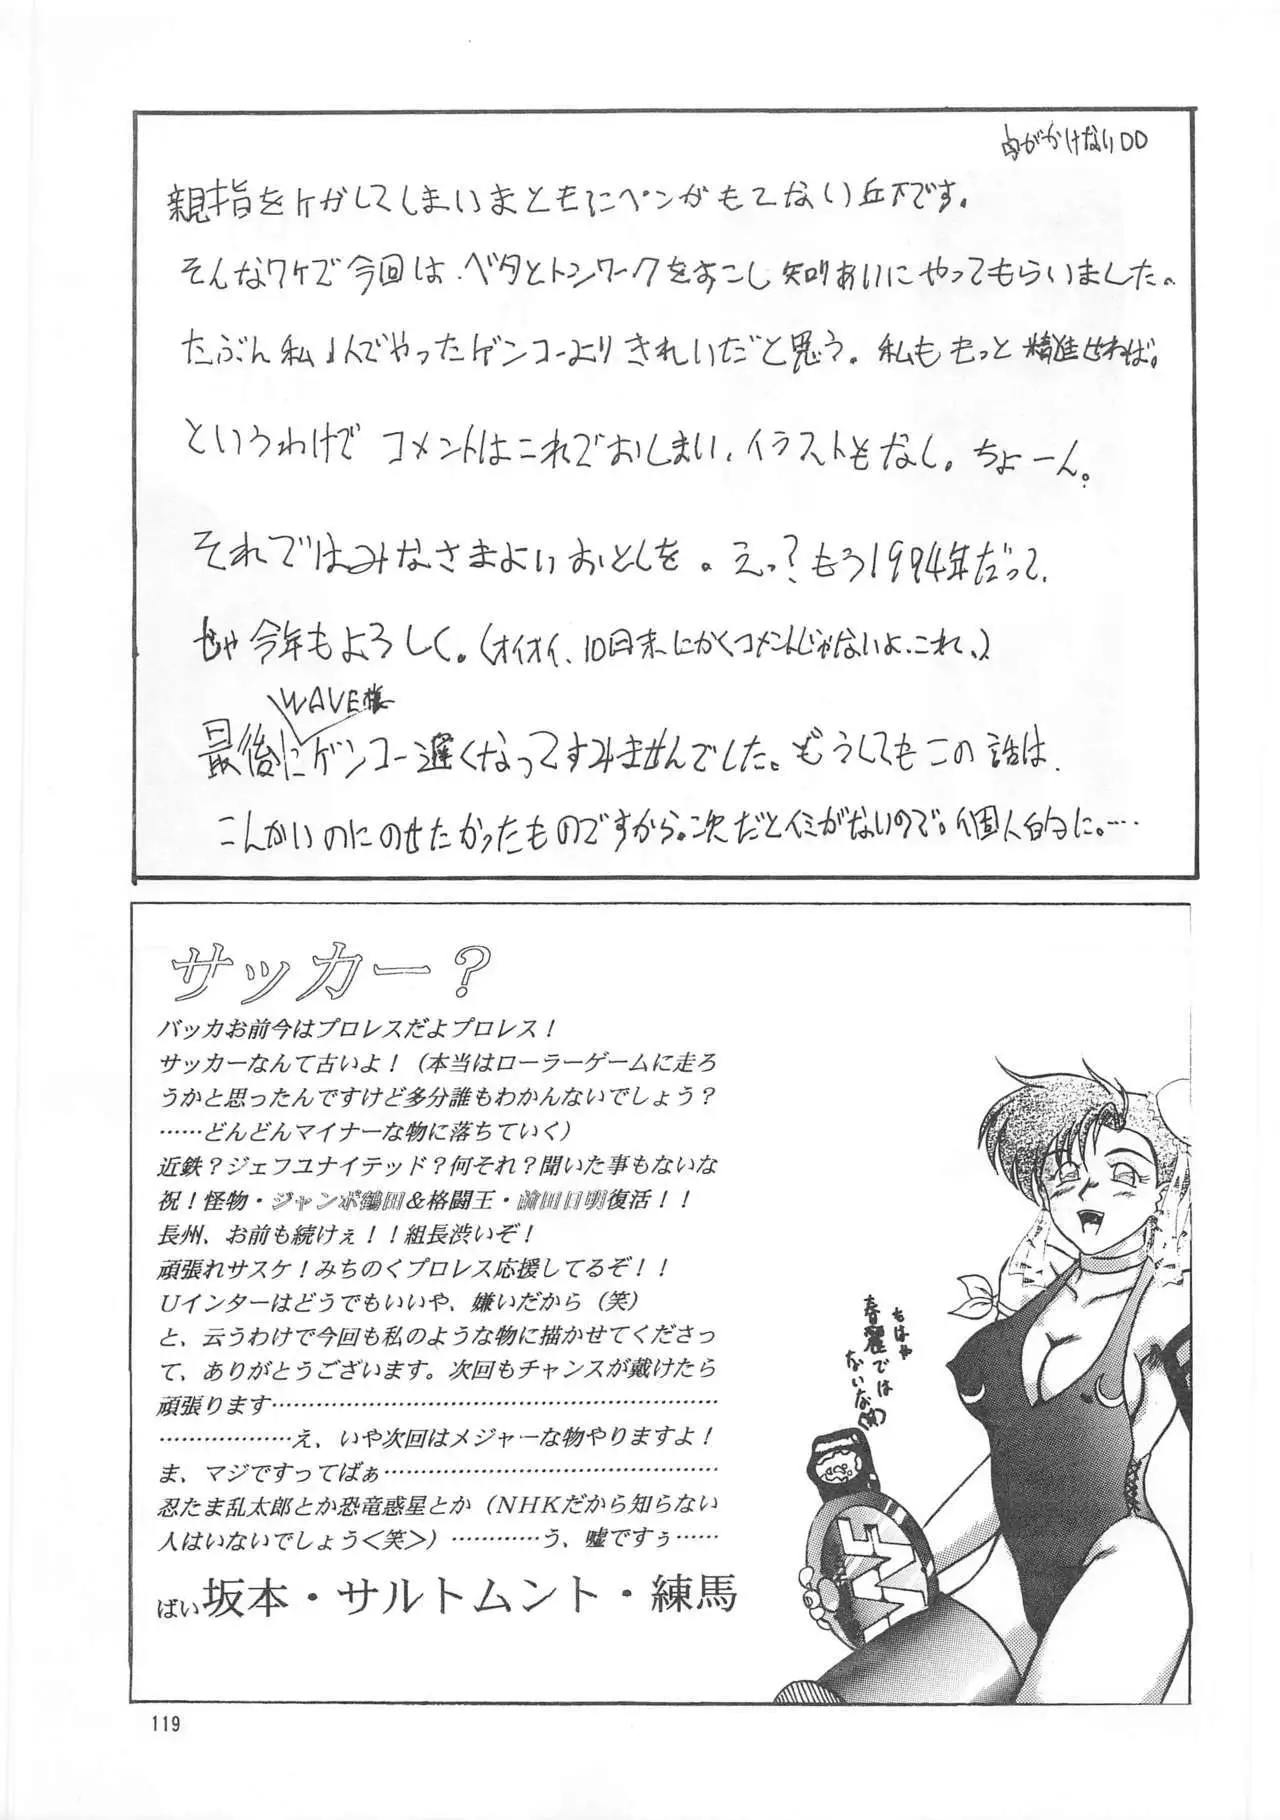 がかけない〇〇
親指をケガしてしまいまともにペンがもてない丘下です。
そんなワケで今回は、ベタとトンワークをすこし知りあいにやってもらいました。
たぶん私1人でやったゲンコーよりきれいだと思う。私ももっと精進せねば。
というわけでコメントはこれでおしまい、イラストもなし。ちょーん。
それではみなさまよいおとしを。えっ?もう1994年だって、
じゃ今年もよろしく。(オイオイ、10月末にかくコメントじゃないよ、これ、)
WAVE様
最後にゲンコー遅くなってすみませんでした。どうしてもこの話は、
こんかいのにのせたかったものですから。次だとイミがないので。個人的に。…
サッカー?
バッカお前今はプロレスだよプロレス!
サッカーなんて古いよ!(本当はローラーゲームに走ろ
うかと思ったんですけど多分誰もわかんないでしょう?
……どんどんマイナーな物に落ちていく)
近鉄?ジェフユナイテッド?何それ?聞いた事もないな
祝!怪物・ジャンボ鶴田&格闘王・前田日明復活!!
長州、お前も続けぇ!!組長渋いぞ!
頑張れサスケ!みちのくプロレス応援してるぞ!!
Uインターはどうでもいいや、嫌いだから(笑)
と、云うわけで今回も私のような物に描かせてくださっ
て、ありがとうございます。次回もチャンスが戴けたら
頑張ります……………………………………………………
………………え、いや次回はメジャーな物やりますよ!
ま、マジですってばぁ………………………………………
忍たま乱太郎とか恐竜惑星とか(NHKだから知らない
人はいないでしょう<笑>)…………う、嘘ですぅ……
ばい坂本・サルトムント・練馬
もはや
春麗では
ないな(笑)
119